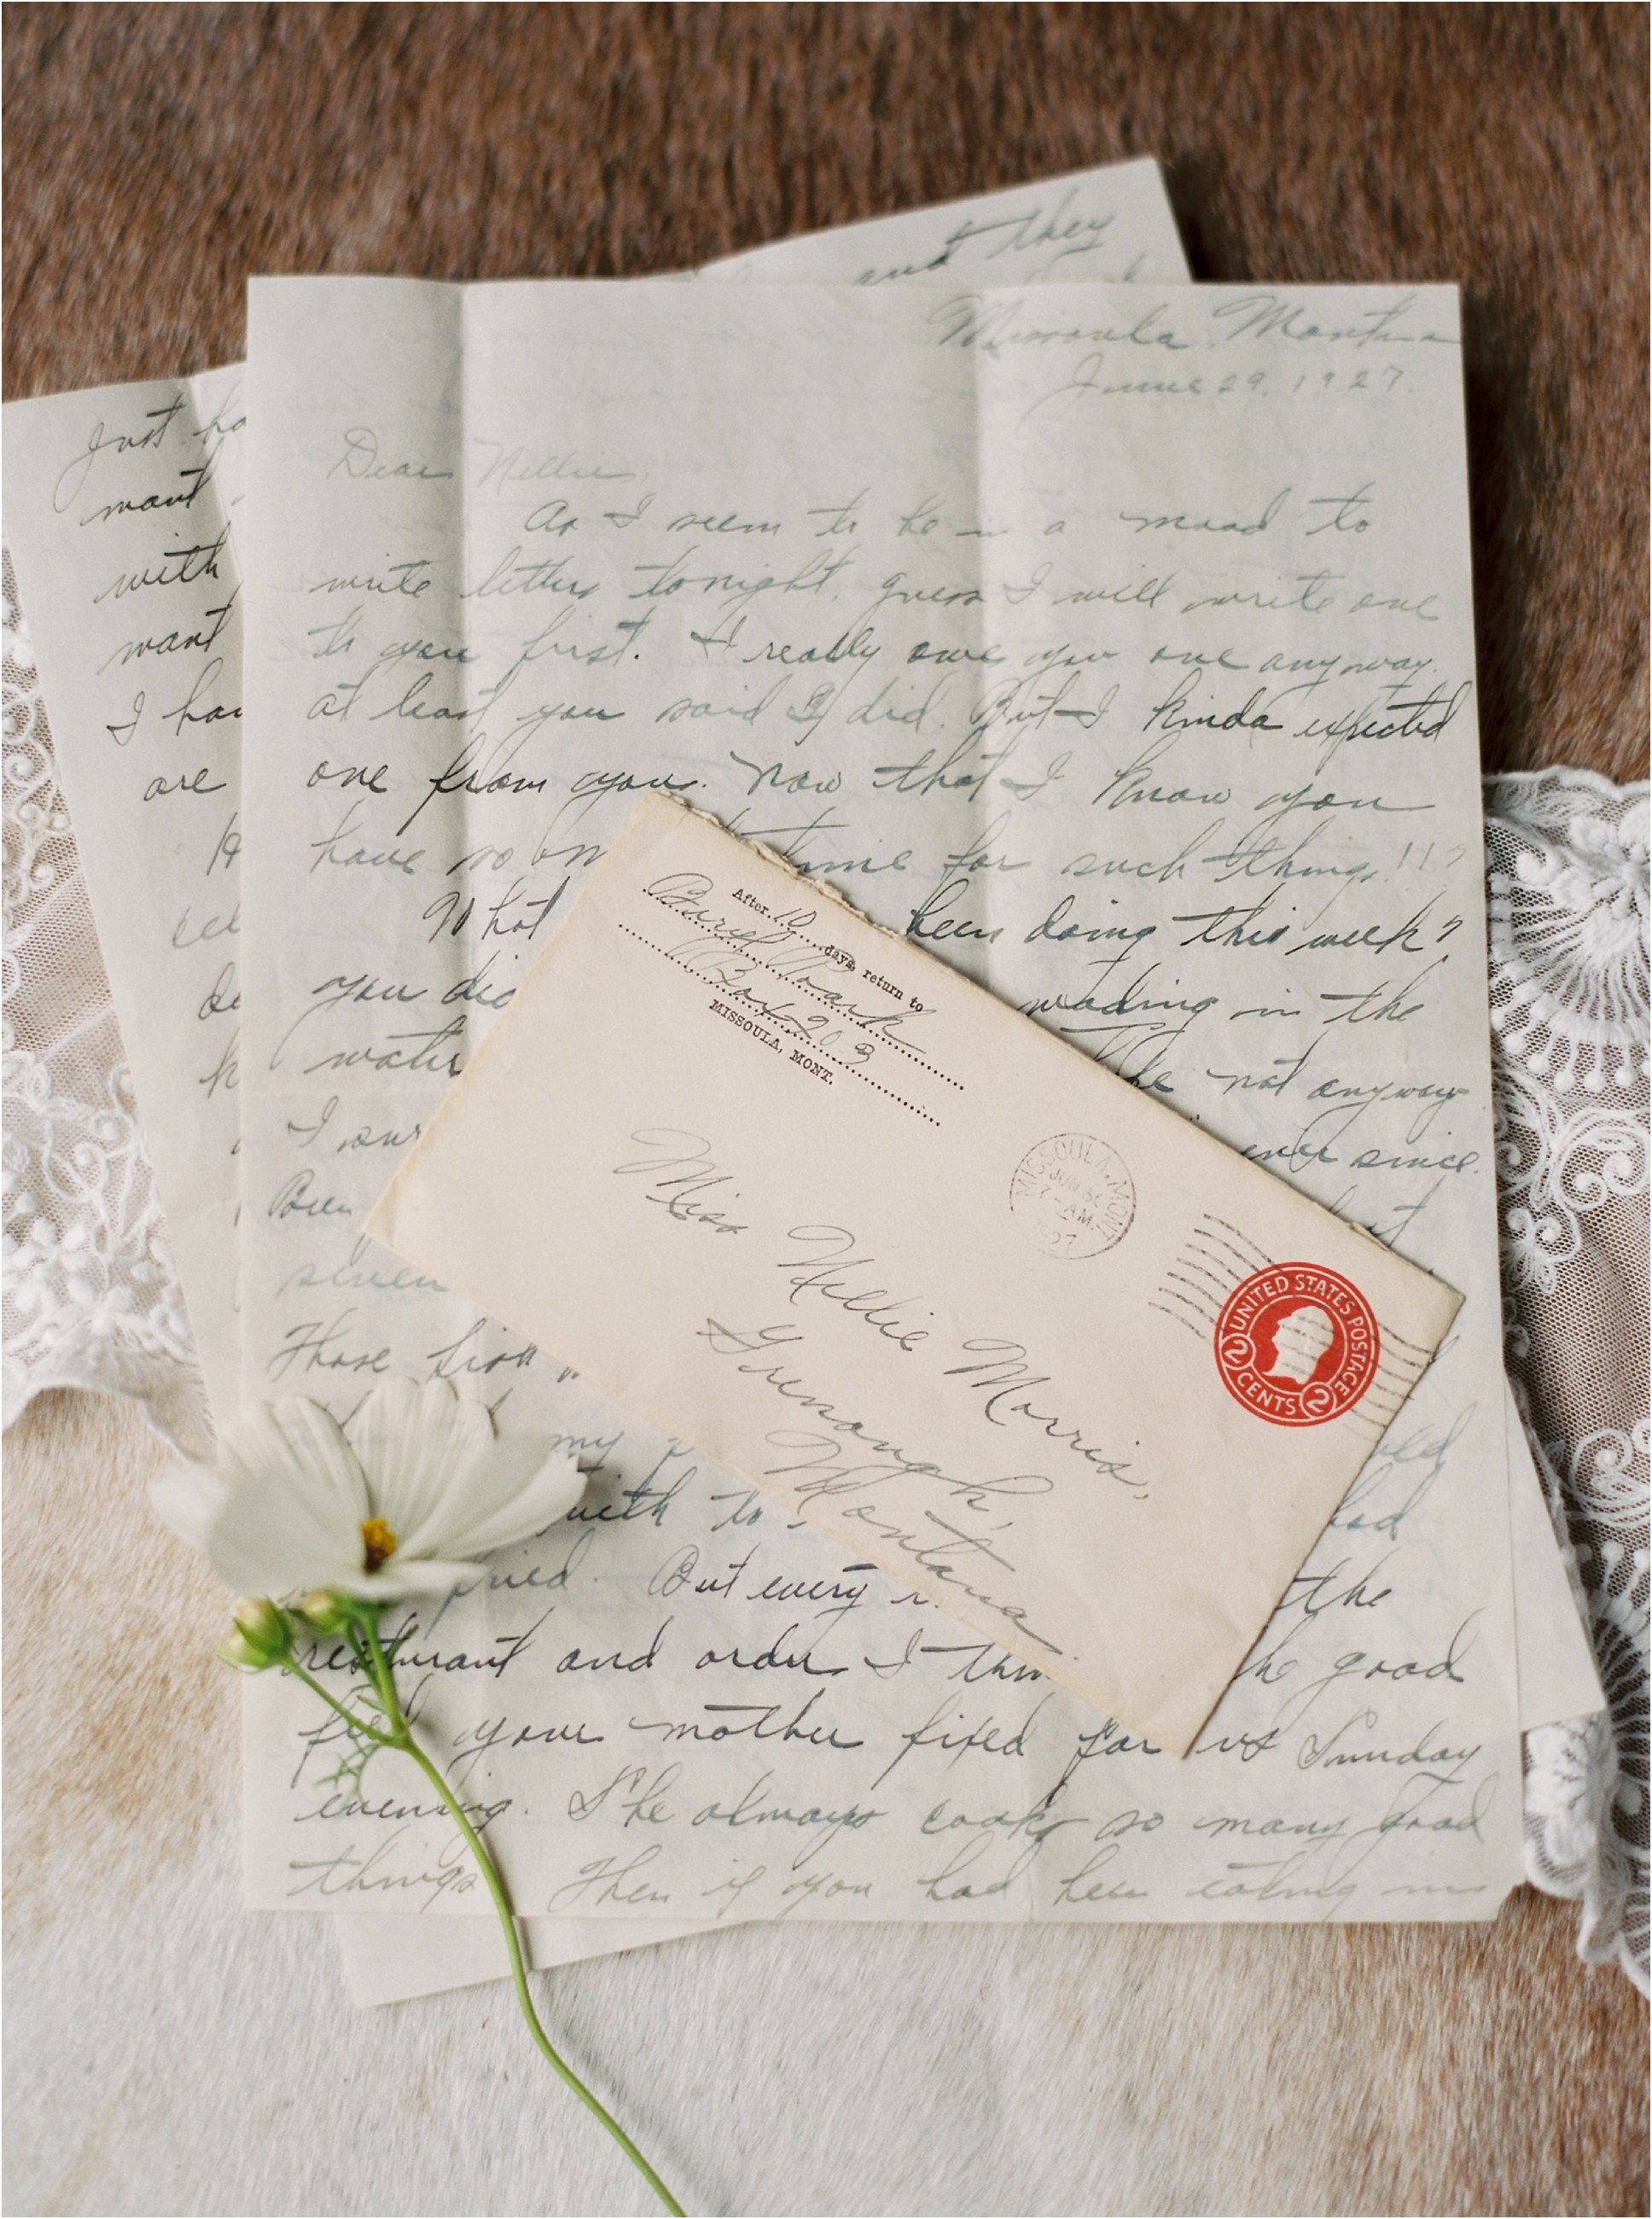 and they
Missoula, Montana
June 29, 1927.
Dear Nellie
As I seem to be in a mood to
write letters tonight, guess I will write one
to you first. I really owe you one anyway.
at least you said I did. But I kinda expected
one from you. Now that I know you
have so time for such things!!!
What been doing this week?
you did wading in the
water not anyway
I sure ever since.
Been
seven
Those
my
with to had
But every the
resturant and order I the good
feed your mother fixed for us Sunday
evening. She always cooks so many good
things. Then if you had been eating in
Just ha
want
with
want
I hav
are
After 10 days, return to
Beryl Roark
Box 203
MISSOULA, MONT.
MISSOULA, MONT.
JUN 30
7-AM.
1927
UNITED STATES POSTAGE
2 CENTS 2
Miss Nellie Morris,
Greenough,
Montana